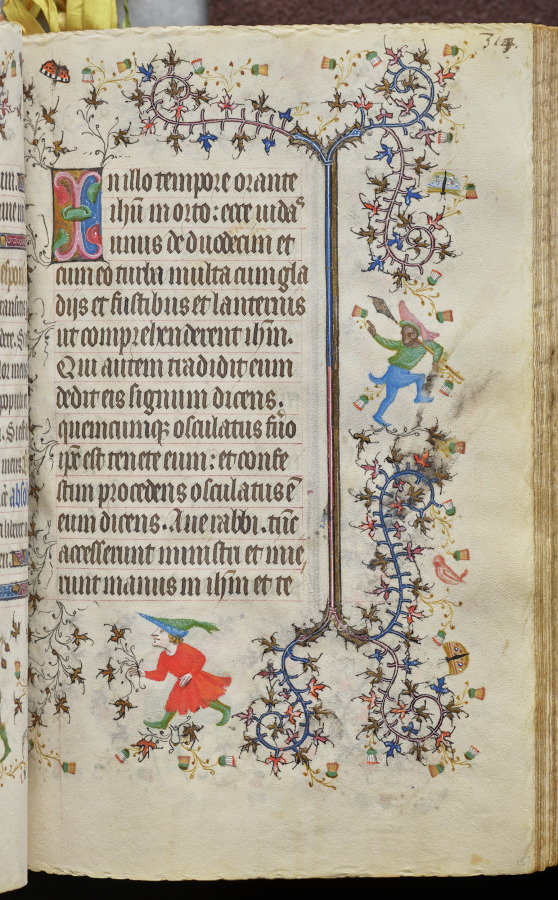 314.
In illo tempore orante
ihu in orto: ecce iudas
unus de duodecim et
cum eo turba multa cum gla
dijs et fustibus et lanternis
ut comprehenderent ihm.
Qui autem tradidit eum
dedit eis signum dicens.
quemcumqz osculatus fuo
ipe est tenete eum: et confe
stim procedens osculatus ē
eum dicens. Aue rabbi. tūc
accesserunt ministri et inie
runt manus in ihm et te